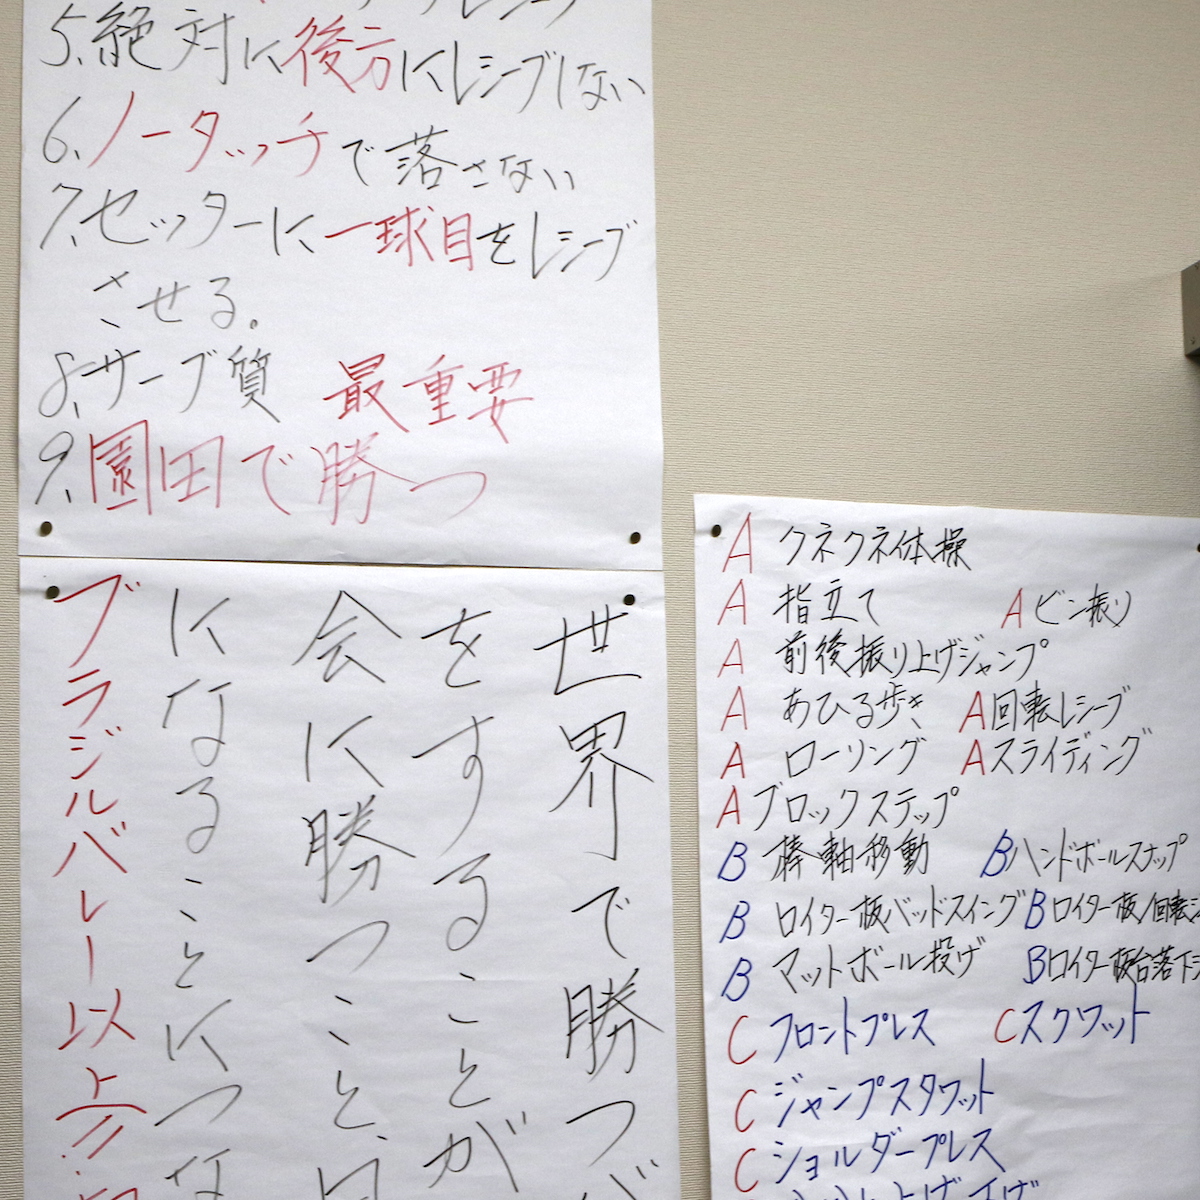 5、絶対に後方にレシーブしない
6、ノータッチで落さない
7、セッターに一球目をレシーブ
させる。
8、サーブ質 最重要
9、園田で勝つ
世界で勝つ
をすることが
会に勝つこと、
になることにつな
ブラジルバレー以上!!
A クネクネ体操
A 指立て A ビン振り
A 前後振り上げジャンプ
A あひる歩き A 回転レシーブ
A ローリング A スライディング
A ブロックステップ
B 棒軸移動 B ハンドボールスナップ
B ロイター板バッドスイング B ロイター板/回転
B マットボール投げ B ロイター板台落下
C フロントプレス C スクワット
C ジャンプスクワット
C ショルダープレス